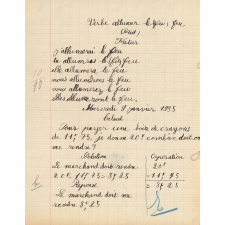 Verbe allumer le feu
Futur
j'allumerai le feu
tu allumeras le feu
elle allumera le feu
nous allumerons le feu
vous allumerez le feu
elles allumeront le feu
Mercredi 9 janvier 1935
Calcul
Pour payer une boîte de crayons
de 11f,75 je donne 20f combien doit-on
me rendre?
Solution Opération
Le marchand doit rendre 20f
20f - 11f,75 = 8f25 - 11f75
Réponse = 8f25
Le marchand doit me
rendre 8f25